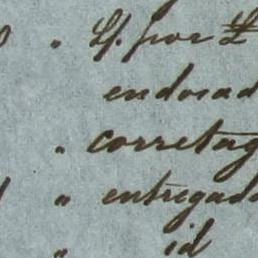 " L/. por £
endosad
" corretag
" entregad
" id